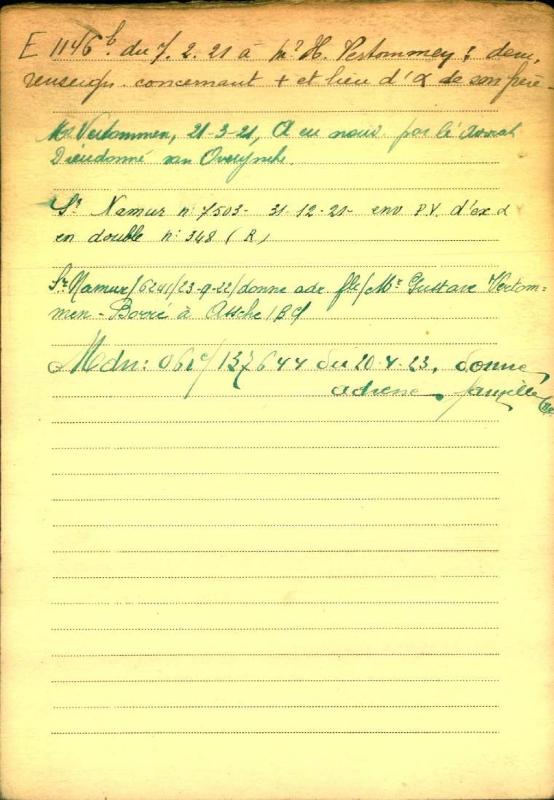 E 1146 b. du 7.2.21 à Mr H. Vertommen: dem.
renseign. concernant + et lieu d'α de son père
Mr Vertommen, 21-3-21, a eu nouv. par le
Dieudonné van Overynche.
St Namur n° 7503- 31-12-21- env P.V. d'ex α
en double n° 348 (R)
St Namur/6241/23-9-22/donne adr flle/Mr Gustave Vertom-
men-Borré à Assche/Bd
Mdn: 061c/137644 du 20-4-23, donne
adresse famille